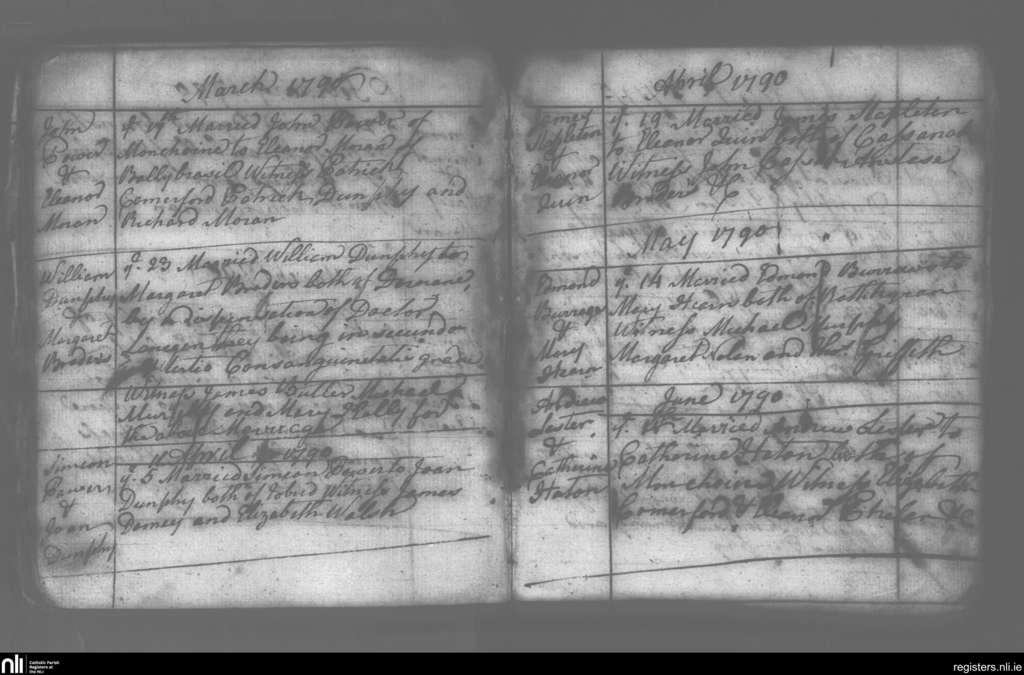 March 1790
John
Power
&
Eleanor
Moran
ye 17th Married John Power of
Moncheine to Eleanor Moran of
Ballybrasil Witness Patrick
Comerford Patrick Dunphy and
Richard Moran
William
Dunphy
&
Margaret
Broders
ye 23 Married William Dunphy to
Margaret Broders both of
by a dispensation of Doctor
they being in secundo
tertio Consanguinitatis gradu
Witness James Butler Michael
Murphy and Mary Kelly for
the above Marriage
April 1790
Simeon
Powers
&
Joan
Dunphy
ye 5 Married Simeon Power to Joan
Dunphy both of Robin Witness James
Demsey and Elizabeth Walsh
April 1790
James
Stapleton
Eleanor
Quin
ye 19 Married James Stapleton
to Eleanor Quin both of
Witness John
May 1790
Edmond
Burrows
&
Mary
Hearn
ye 14 Married Edmond Burrows to
Mary Hearn both of
Witness Michael Murphy
Margaret Nolan and Thos. Griffeth
June 1790
Andrew
Lester
&
Catherine
Haton
ye Married Andrew Lester to
Catherine Haton both of
Moncheine Witness Elizabeth
Comerford & &c
nli
Catholic Parish
Registers at
the NLI
registers.nli.ie